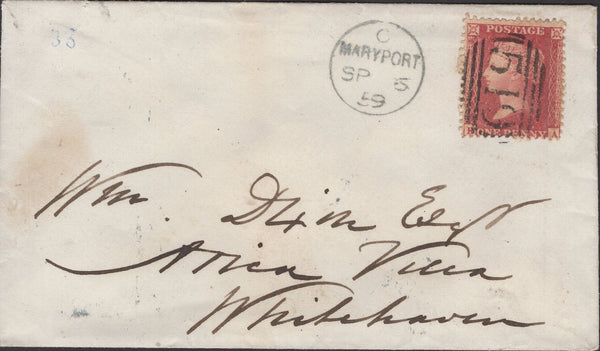 33
C
MARYPORT
SP 5
59
POSTAGE
519
ONE PENNY
A
Wm. Dixon Esqr
Villa
Whitehaven